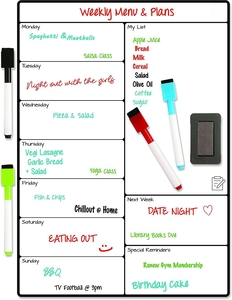 Weekly Menu & Plans
Monday
Spaghetti & Meatballs
Salsa Class
Tuesday
Night out with the girls
Wednesday
Pizza & Salad
Thursday
Veg Lasagne
Garlic Bread
+ Salad
Yoga Class
Friday
Fish & Chips
Chillout @ Home
Saturday
EATING OUT
Sunday
BBQ
TV Football @ 3pm
My List
Apple Juice
Bread
Milk
Cereal
Salad
Olive Oil
Coffee
Sugar
Next Week
DATE NIGHT
Library Books Due
Special Reminders:
Renew Gym Membership
Birthday Cake